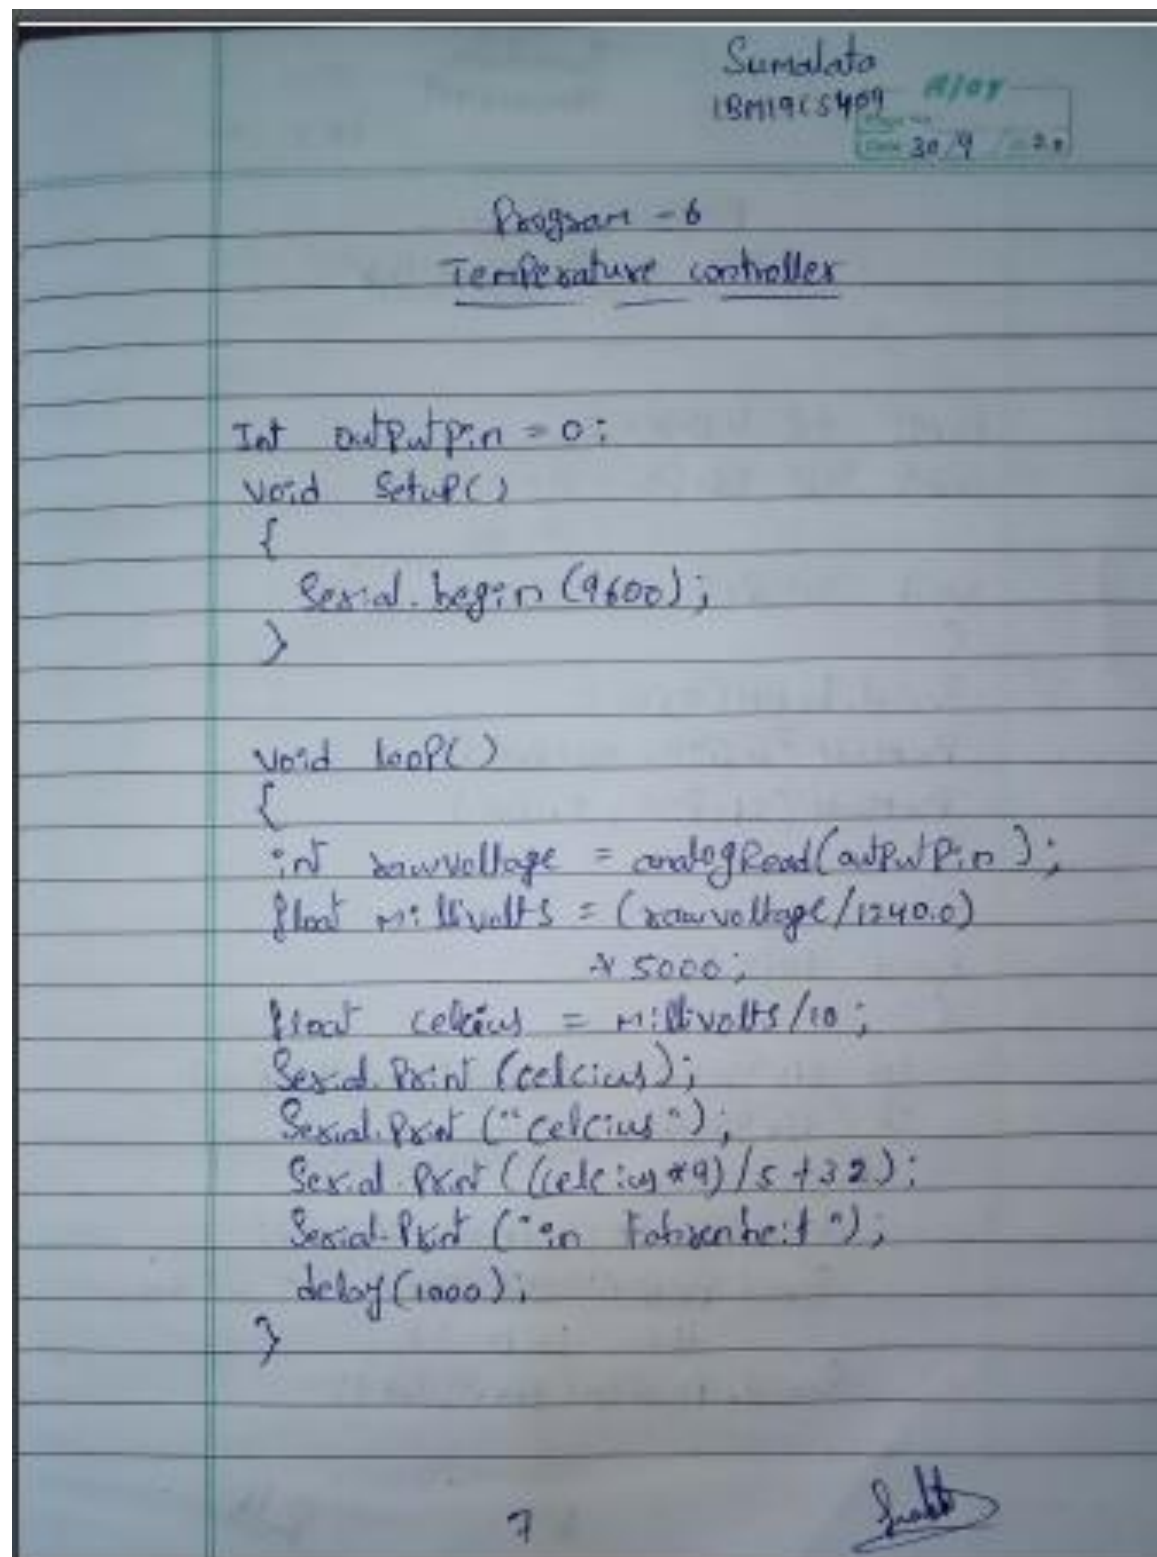 Sumalata
1BM19CS409
Date 30/9/20
Program - 6
Temperature controller
Int outputpin = 0;
void Setup()
{
Serial.begin (9600);
}
void loop()
{
int rawvoltage = analogRead(outputPin);
float millivolts = (rawvoltage/1240.0)
* 5000;
float celcius = millivolts/10;
Serial.Print (celcius);
Serial.Print ("celcius");
Serial.Print ((celcius*9)/5+32);
Serial.Print ("in Fahrenheit");
delay(1000);
}
7